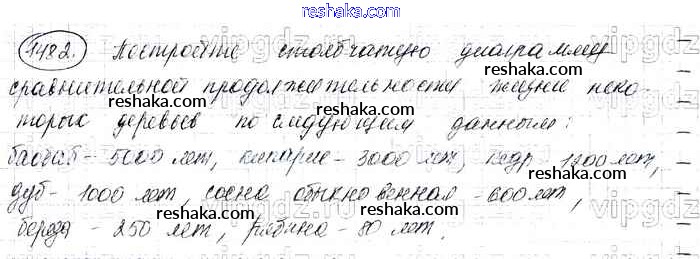 reshaka.com
1482. Постройте столбчатую диаграмму
сравнительной продолжительности жизни неко-
reshaka.com reshaka.com
торых деревьев по следующим данным:
reshaka.com reshaka.com
баобаб - 5000 лет, кипарис - 3000 лет, кедр 1200 лет,
дуб - 1000 лет, сосна обыкновенная - 600 лет,
reshaka.com reshaka.com
береза - 250 лет, рябина - 80 лет.
reshaka.com